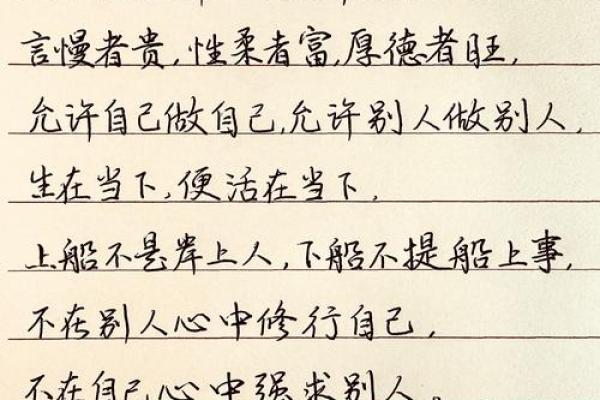 言慢者贵,性柔者富,厚德者旺,
允许自己做自己,允许别人做别人,
生在当下,便活在当下,
上船不思岸上人,下船不提船上事,
不在别人心中修行自己,
不在自己心中强求别人。